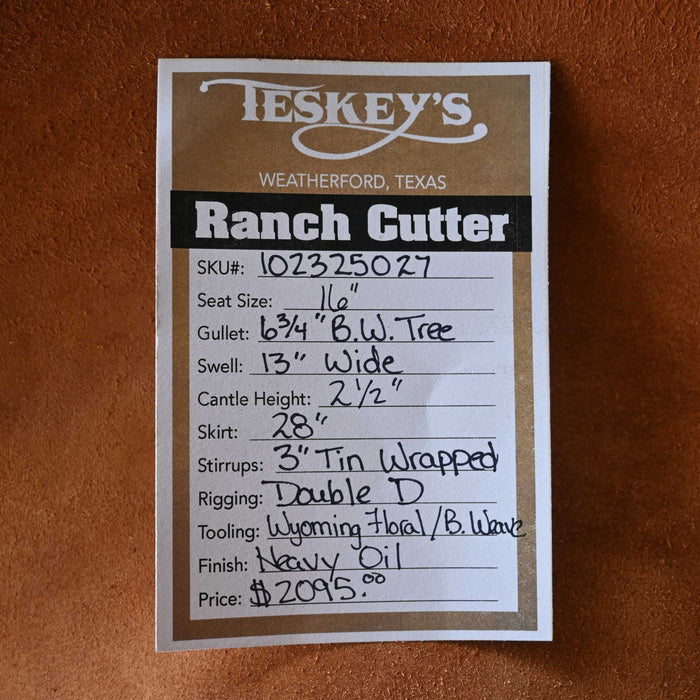 TESKEY'S
WEATHERFORD, TEXAS
Ranch Cutter
SKU#: 102325027
Seat Size: 16"
Gullet: 6 3/4" B.W. Tree
Swell: 13" Wide
Cantle Height: 2 1/2"
Skirt: 28"
Stirrups: 3" Tin Wrapped
Rigging: Double D
Tooling: Wyoming Floral / B. Weave
Finish: Heavy Oil
Price: $2095.00